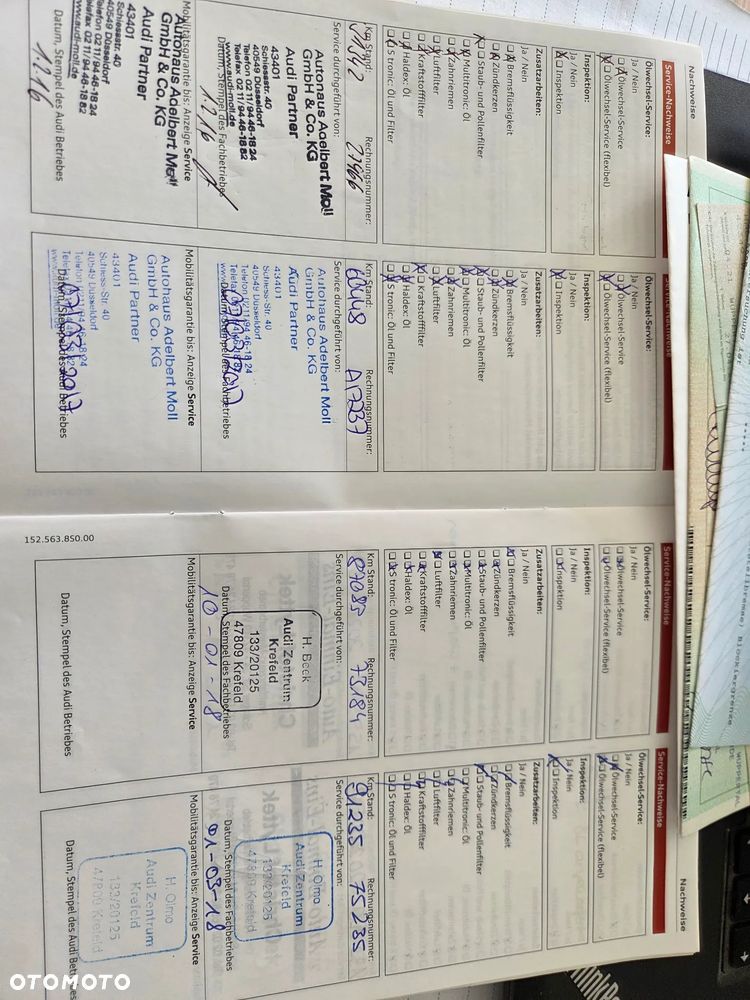 Nachweise
Service-Nachweise
Ölwechsel-Service:
Ja / Nein
Ölwechsel-Service
Ölwechsel-Service (flexibel)
Inspektion:
Ja / Nein
Inspektion
Zusatzarbeiten:
Ja / Nein
Bremsflüssigkeit
Zündkerzen
Staub- und Pollenfilter
Multitronic: Öl
Zahnriemen
Luftfilter
Kraftstofffilter
Haldex: Öl
S tronic: Öl und Filter
Km Stand: Rechnungsnummer:
Service durchgeführt von:
Autohaus Adelbert Moll
GmbH & Co. KG
Audi Partner
43401
Schiessstr. 40
40549 Düsseldorf
Telefon 02 11/9 44 46-18 24
Telefax 02 11/9 44 46-18 82
www.audi-moll.de
Datum, Stempel des Fachbetriebes
1.2.16
Mobilitätsgarantie bis: Anzeige Service
Autohaus Adelbert Moll
GmbH & Co. KG
Audi Partner
43401
Schiessstr. 40
40549 Düsseldorf
www.audi-moll.de
Datum, Stempel des Audi Betriebes
1.2.16
Service-Nachweise
Ölwechsel-Service:
Ja / Nein
Ölwechsel-Service
Ölwechsel-Service (flexibel)
Inspektion:
Ja / Nein
Inspektion
Zusatzarbeiten:
Ja / Nein
Bremsflüssigkeit
Zündkerzen
Staub- und Pollenfilter
Multitronic: Öl
Zahnriemen
Luftfilter
Kraftstofffilter
Haldex: Öl
S tronic: Öl und Filter
Km Stand: Rechnungsnummer:
A17237
Service durchgeführt von:
Autohaus Adelbert Moll
GmbH & Co. KG
Audi Partner
43401
Schiess-Str. 40
40549 Düsseldorf
Datum, Stempel des Fachbetriebes
Mobilitätsgarantie bis: Anzeige Service
Autohaus Adelbert Moll
GmbH & Co. KG
Audi Partner
43401
Schiess-Str. 40
40549 Düsseldorf
Datum, Stempel des Audi Betriebes
152.563.850.00
Service-Nachweise
Ölwechsel-Service:
Ja / Nein
Ölwechsel-Service
Ölwechsel-Service (flexibel)
Inspektion:
Ja / Nein
Inspektion
Zusatzarbeiten:
Ja / Nein
Bremsflüssigkeit
Zündkerzen
Staub- und Pollenfilter
Multitronic: Öl
Zahnriemen
Luftfilter
Kraftstofffilter
Haldex: Öl
S tronic: Öl und Filter
Km Stand: Rechnungsnummer:
87085 73184
Service durchgeführt von:
H. Beck
Audi Zentrum
Krefeld
133/20125
47809 Krefeld
Datum, Stempel des Fachbetriebes
10-01-18
Mobilitätsgarantie bis: Anzeige Service
Datum, Stempel des Audi Betriebes
Nachweise
Service-Nachweise
Ölwechsel-Service:
Ja / Nein
Ölwechsel-Service
Ölwechsel-Service (flexibel)
Inspektion:
Ja / Nein
Inspektion
Zusatzarbeiten:
Ja / Nein
Bremsflüssigkeit
Zündkerzen
Staub- und Pollenfilter
Multitronic: Öl
Zahnriemen
Luftfilter
Kraftstofffilter
Haldex: Öl
S tronic: Öl und Filter
Km Stand: Rechnungsnummer:
91235 75235
Service durchgeführt von:
H. Olmo
Audi Zentrum
Krefeld
133/20125
47809 Krefeld
Datum, Stempel des Fachbetriebes
01-03-18
Mobilitätsgarantie bis: Anzeige Service
H. Olmo
Audi Zentrum
Krefeld
133/20125
47809 Krefeld
Datum, Stempel des Audi Betriebes
WUPPERTAL
OTOMOTO